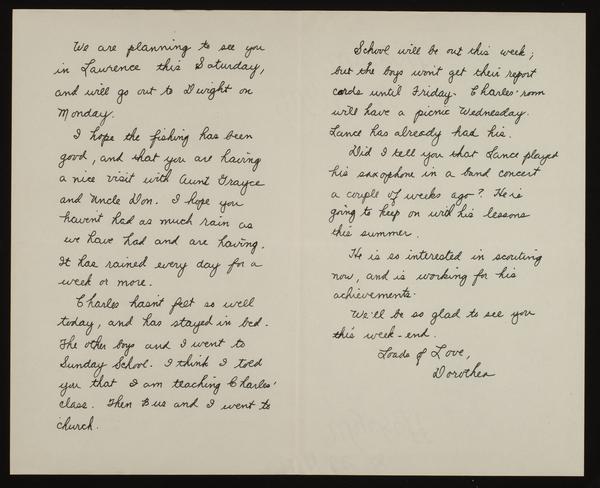 We are planning to see you
in Lawrence this Saturday,
and will go out to Dwight on
Monday.
I hope the fishing has been
good, and that you are having
a nice visit with Aunt Grayce
and Uncle Don. I hope you
haven't had as much rain as
we have had and are having.
It has rained every day for a
week or more.
Charles hasn't felt so well
today, and has stayed in bed.
The other boys and I went to
Sunday School. I think I told
you that I am teaching Charles'
class. Then Bus and I went to
church.
School will be out this week;
but the boys won't get their report
cards until Friday. Charles' room
will have a picnic Wednesday.
Lance has already had his.
Did I tell you that Lance played
his saxophone in a band concert
a couple of weeks ago? He is
going to keep on with his lessons
this summer.
He is so interested in scouting
now, and is working for his
achievements.
We'll be so glad to see you
this week-end.
Loads of Love,
Dorothea